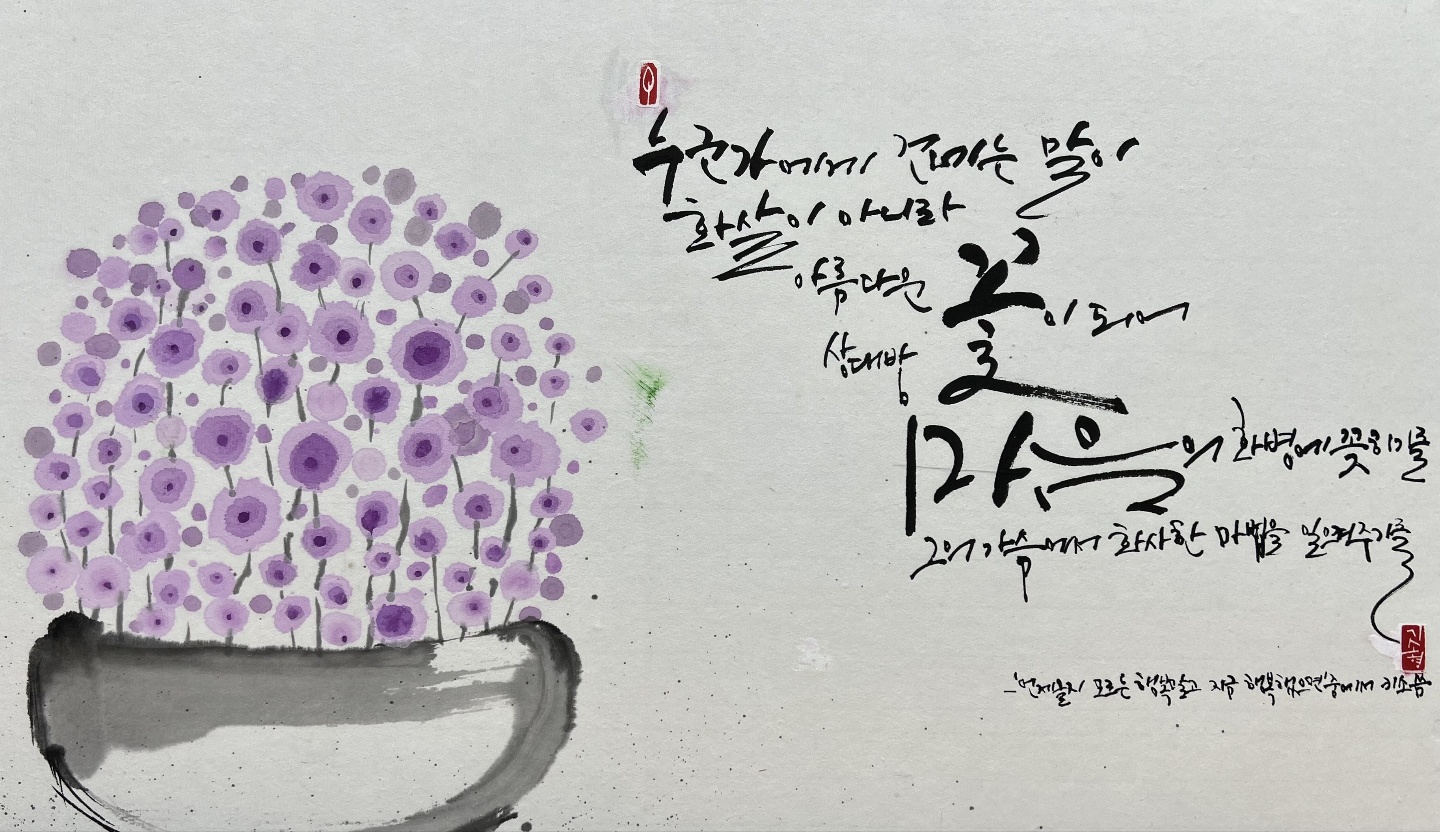 누군가에게 건네는 말이
화살이 아니라
아름다운 꽃이 되어
상대방
마음의 화병에 꽂히기를
그의 가슴에서 화사한 마법을 일으켜주기를
-'언제올지 모르는 행복말고 지금 행복했으면' 중에서